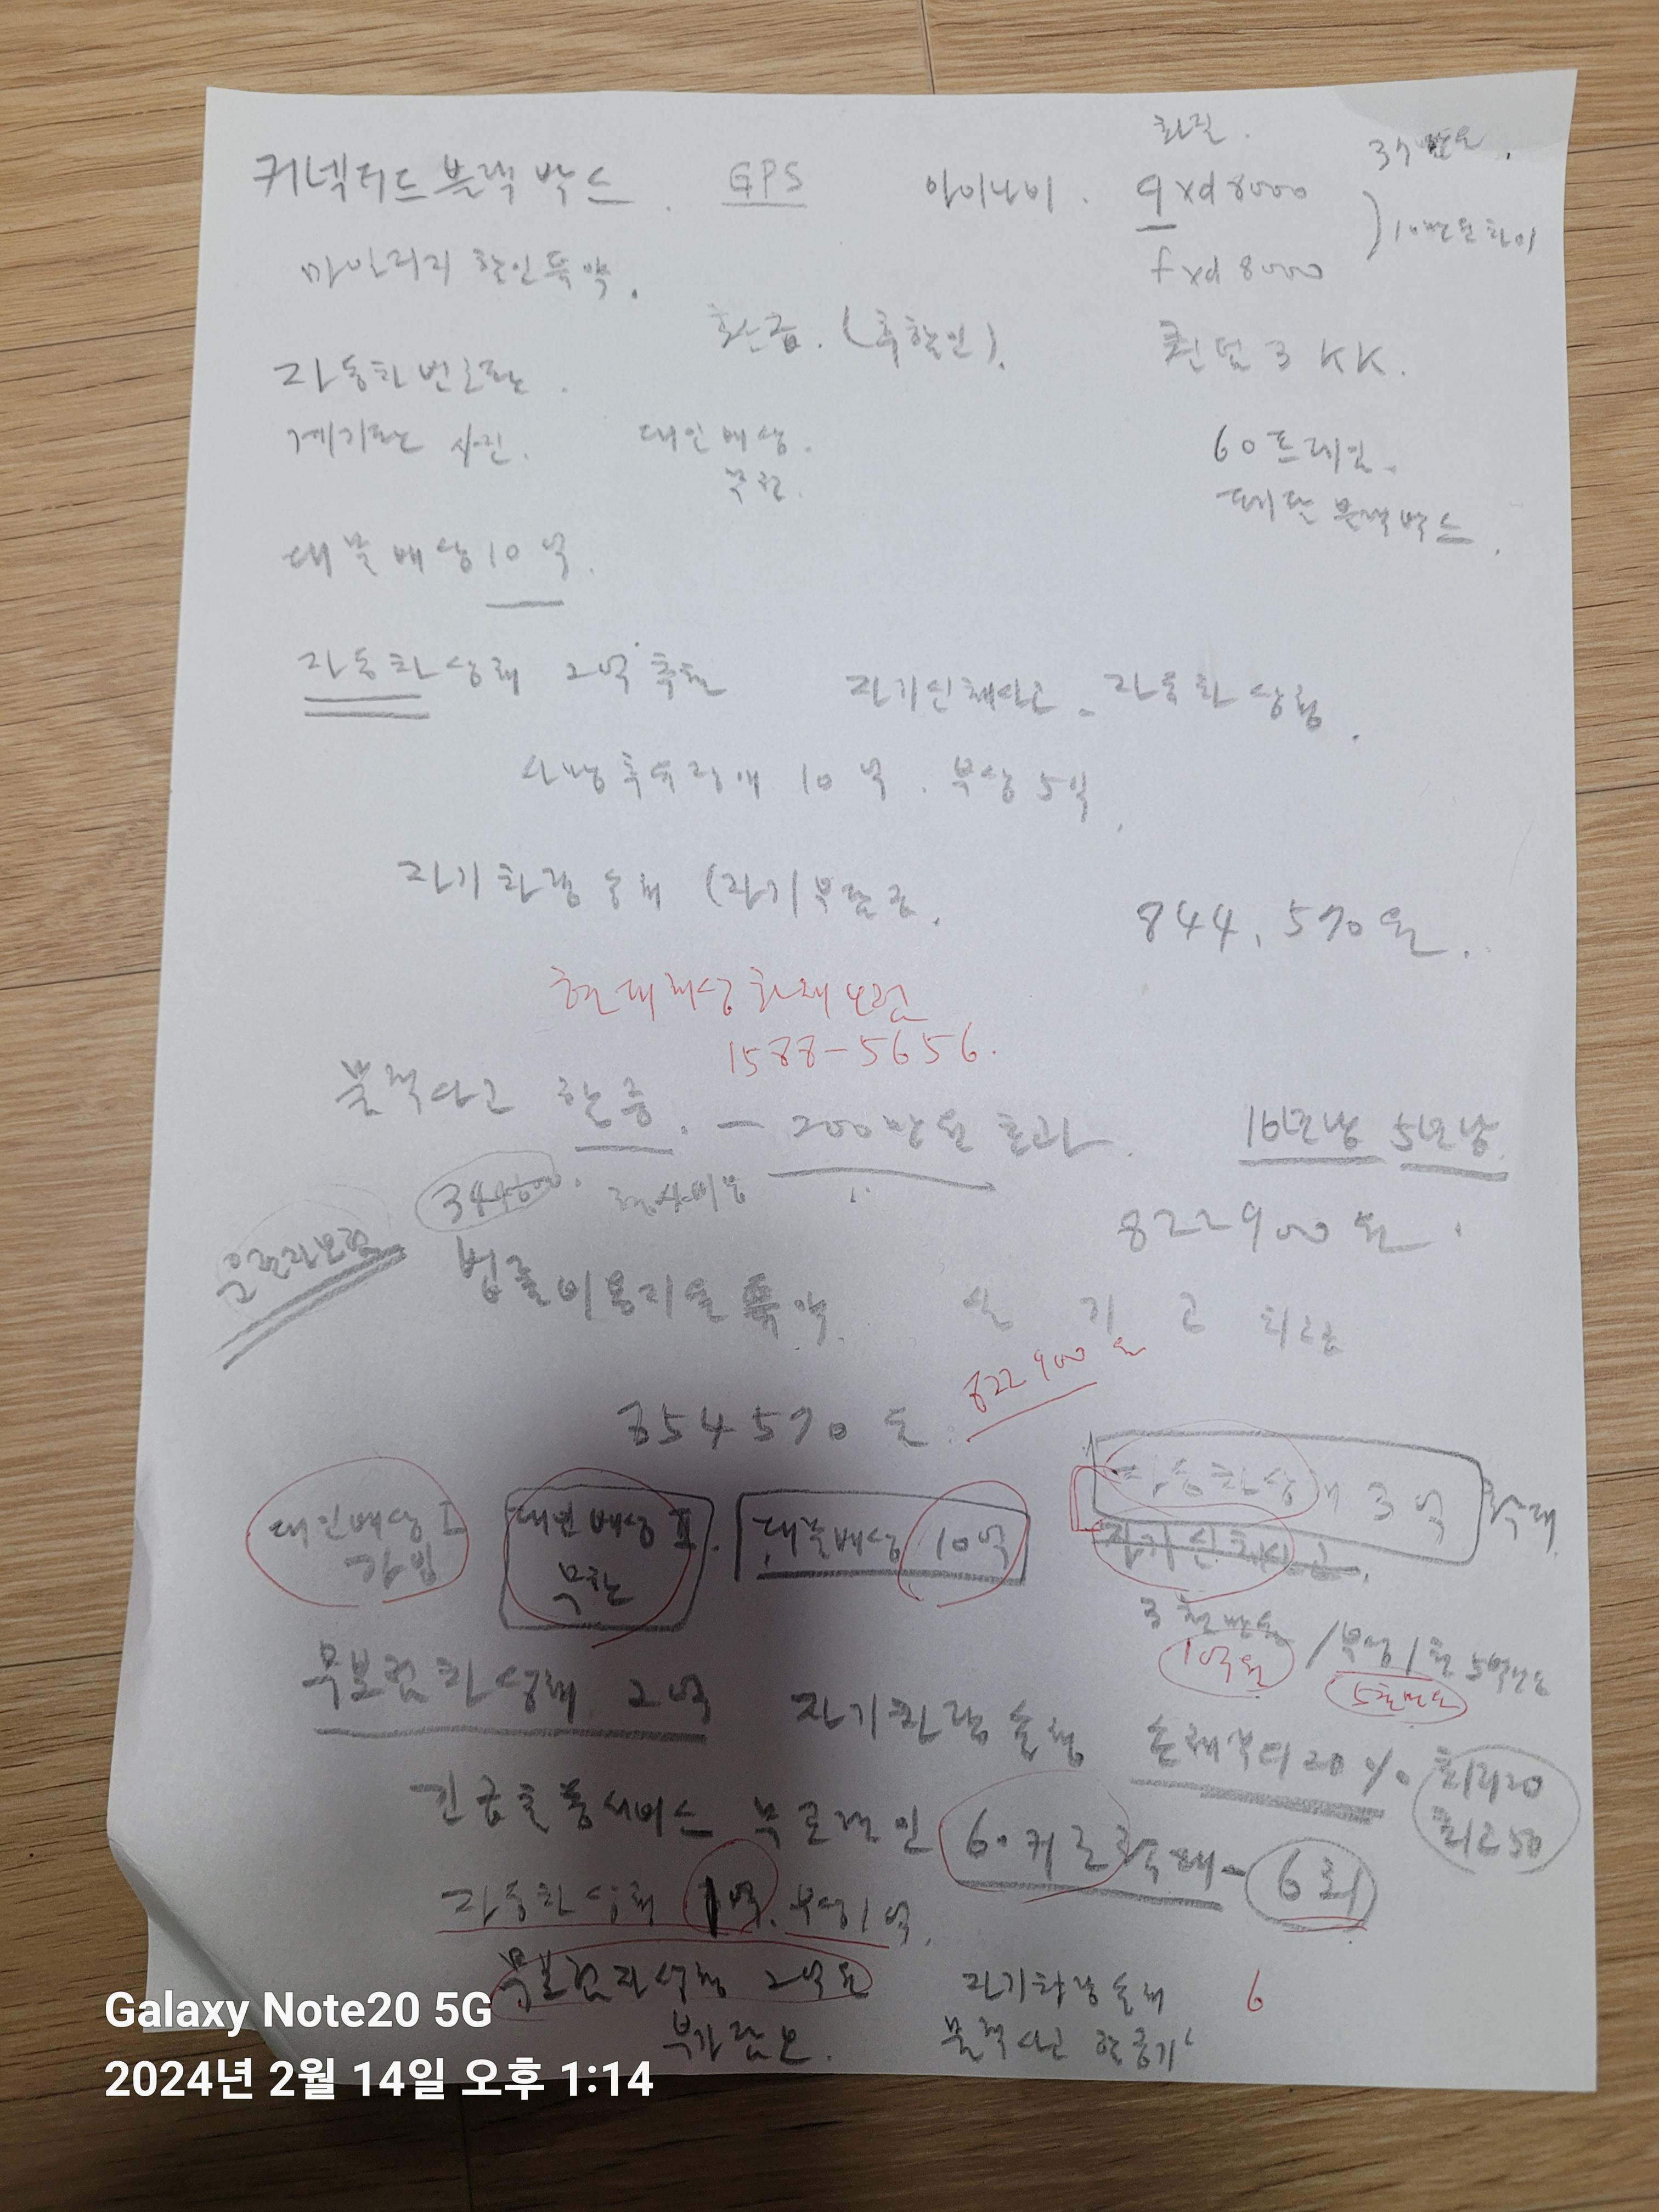 화질.
커넥티드 블랙박스. GPS 아이나비. qxd 8000
10만원 차이
마일리지 할인특약. fxd 8000
환급. (후할인). 퀀텀 3 KK.
자동차 번호판.
계기판 사진. 대인배상. 60프레임.
무한. 페달 블랙박스.
대물배상 10억.
자동차상해 2억 추천 자기신체사고 - 자동차상해.
사망후유장애 10억. 부상 5억.
자기차량손해 (자기부담금. 844,570원.
현대해상화재보험
1588-5656.
물적사고 할증. - 200만원 초과. 16년납 5년납.
822900원.
운전자보험
법률비용지원 특약.
822900원
854570원.
대인배상 I 대인배상 II. 대물배상 10억 자동차상해 3억 확대
가입 무한 자기신체사고.
3천만원 / 부상 / 1천 5백만원
1억원 5천만원
무보험차상해 2억 자기차량손해 손해액의 20% 최저20
최고50
긴급출동서비스 무프랜인 60키로 확대 - 6회
자동차상해 1억. 부상 1억.
무보험차상해 2억원 자기차량손해 6
부가담보. 물적사고 할증기
Galaxy Note20 5G
2024년 2월 14일 오후 1:14